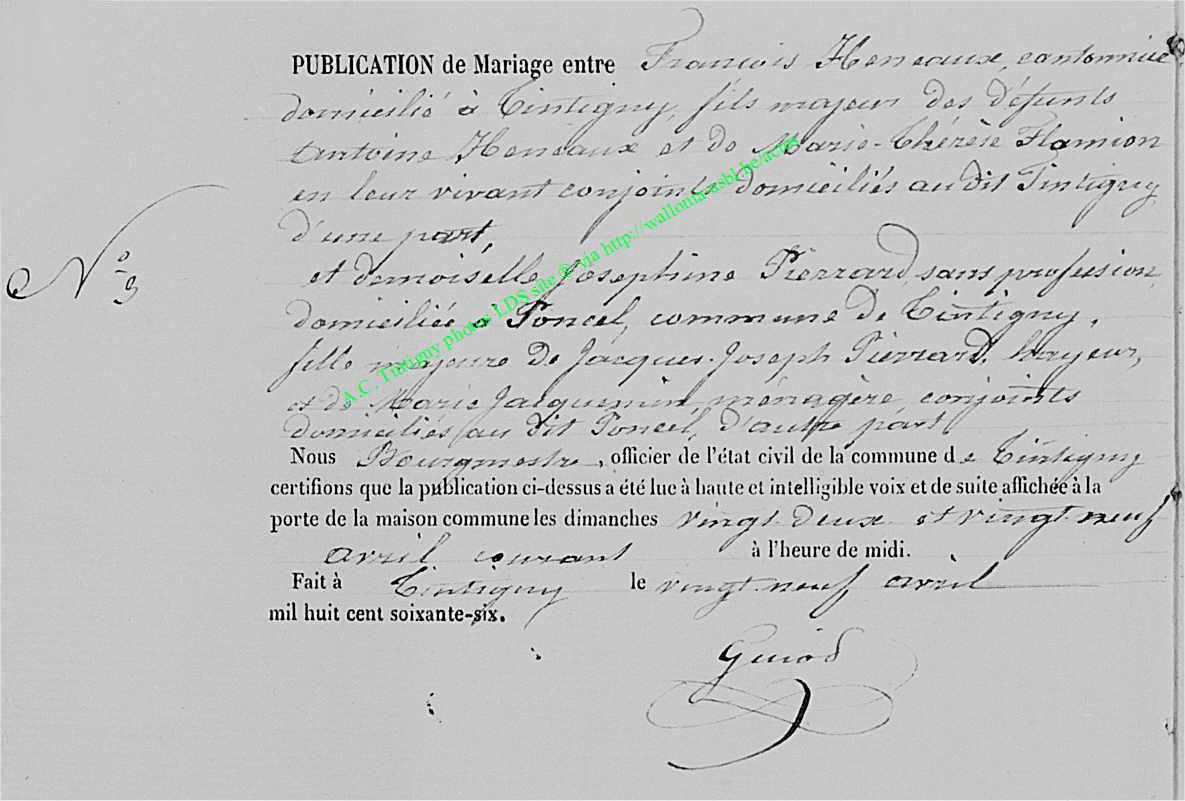 PUBLICATION de Mariage entre François Heneaux, cantonnier
domicilié à Tintigny, fils majeur des défunts
Antoine Heneaux et de Marie-Thérèse Flamion
en leur vivant conjoints domiciliés au dit Tintigny
d'une part,
N° 9
et demoiselle Josephine Pierrard, sans profession,
domiciliée à Poncel, commune de Tintigny,
fille majeure de Jacques-Joseph Pierrard,
et de Marie Jacquemin, ménagère, conjoints
domiciliés au dit Poncel, d'autre part
Nous Bourgmestre, officier de l'état civil de la commune de Tintigny
certifions que la publication ci-dessus a été lue à haute et intelligible voix et de suite affichée à la
porte de la maison commune les dimanches vingt deux et vingt neuf
avril courant à l'heure de midi.
Fait à Tintigny le vingt neuf avril
mil huit cent soixante-six.
Guiod
A.C. Tintigny photos LDS site © via http://wallonia-asbl.be/actes